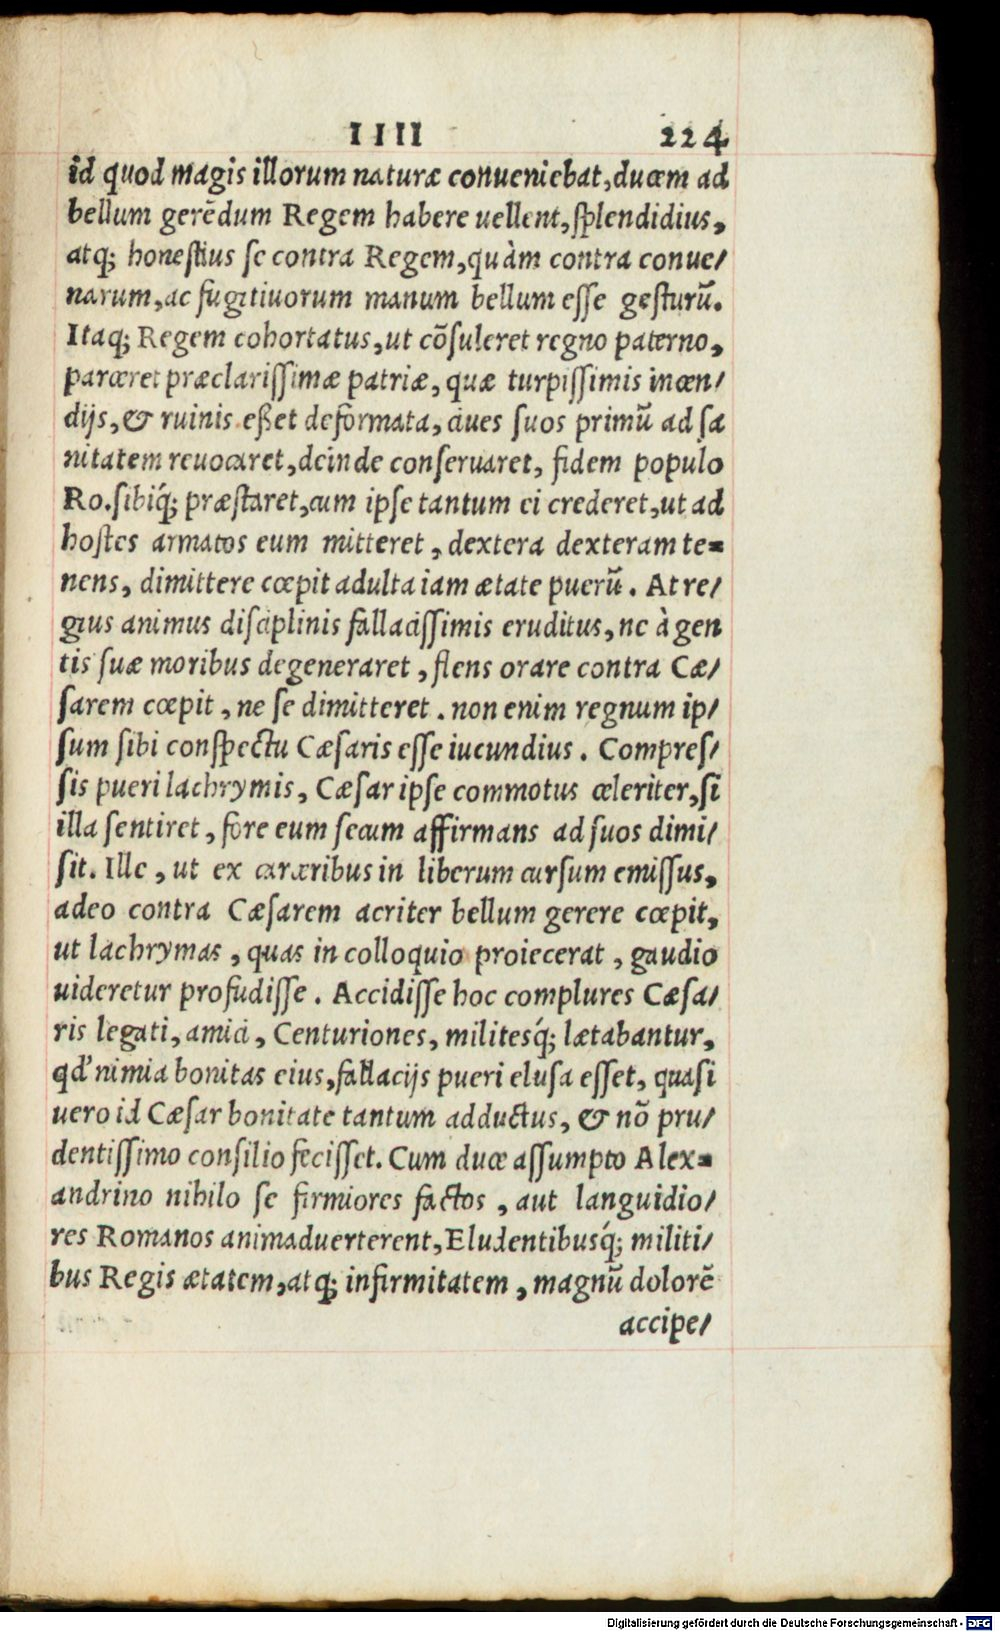 IIII 224
id quod magis illorum naturæ conueniebat, ducem ad
bellum gerēdum Regem habere uellent, splendidius,
atq; honestius se contra Regem, quàm contra conue/
narum, ac fugitiuorum manum bellum esse gesturū.
Itaq; Regem cohortatus, ut cōsuleret regno paterno,
parceret præclarissimæ patriæ, quæ turpissimis incen/
dijs, & ruinis eßet deformata, ciues suos primū ad sa
nitatem reuocaret, deinde conseruaret, fidem populo
Ro. sibiq́; præstaret, cum ipse tantum ei crederet, ut ad
hostes armatos eum mitteret, dextera dexteram te=
nens, dimittere cœpit adulta iam ætate puerū. At re/
gius animus disciplinis fallacissimis eruditus, ne à gen
tis suæ moribus degeneraret, flens orare contra Cæ/
sarem cœpit, ne se dimitteret. non enim regnum ip/
sum sibi conspectu Cæsaris esse iucundius. Compres/
sis pueri lachrymis, Cæsar ipse commotus celeriter, si
illa sentiret, fore eum secum affirmans ad suos dimi/
sit. Ille, ut ex carceribus in liberum cursum emissus,
adeo contra Cæsarem acriter bellum gerere cœpit,
ut lachrymas, quas in colloquio proiecerat, gaudio
uideretur profudisse. Accidisse hoc complures Cæsa/
ris legati, amici, Centuriones, militesq́; lætabantur,
qd' nimia bonitas eius, fallacijs pueri elusa esset, quasi
uero id Cæsar bonitate tantum adductus, & nō pru/
dentissimo consilio fecisset. Cum duce assumpto Alex=
andrino nihilo se firmiores factos, aut languidio/
res Romanos animaduerterent, Eludentibusq́; militi/
bus Regis ætatem, atq; infirmitatem, magnū dolorē
accipe/
Digitalisierung gefördert durch die Deutsche Forschungsgemeinschaft - DFG